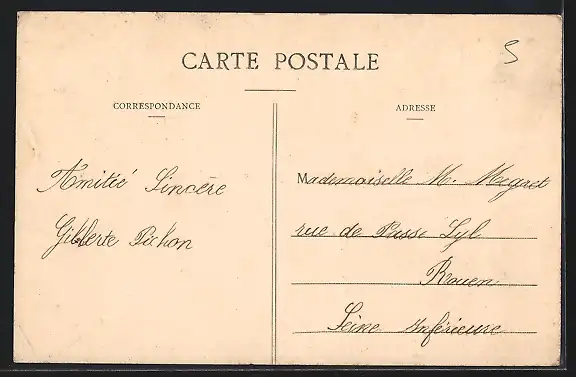 CARTE POSTALE
5
CORRESPONDANCE
ADRESSE
Amitié Sincère
Gilberte Pichon
Mademoiselle M. Megret
rue de Passe Lyl
Rouen
Seine Inférieure